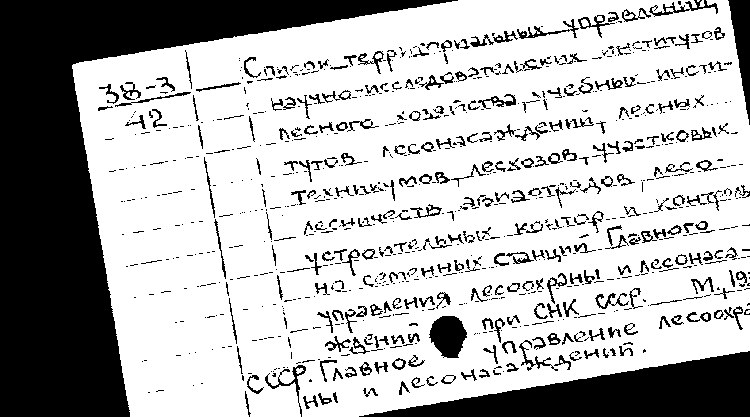 38-3
42
Список территориальных управлений,
научно-исследовательских институтов
лесного хозяйства, учебных инсти-
тутов лесонасаждений, лесных
техникумов, лесхозов, участковых
лесничеств, авиаотрядов, лесо-
устроительных контор и контроль
но семенных станций Главного
управления лесоохраны и лесонаса-
ждений при СНК СССР. М., 19
СССР. Главное управление лесоохра
ны и лесонасаждений.